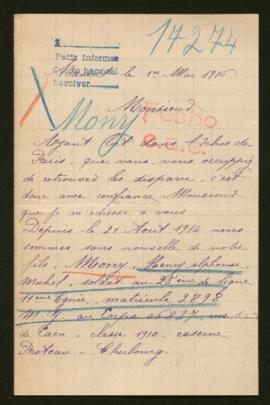 17274
Pedir informes
devolver
le 1er Mai 1916
Mony
Monsieur
Ayant lit dans l'Echos de
Paris, que vous vous occupiez
de retrouver les disparu, c'est
donc avec confiance Monsieur
que je m'adresse à vous
Depuis le 21 Août 1914 nous
sommes sans nouvelle de notre
fils, Mony, Henry alphonse
soldat au 25ème de ligne
11ème Cgnie, matricule 2898
au Corps
de Caen, classe 1910, caserne
Proteau - Cherbourg.